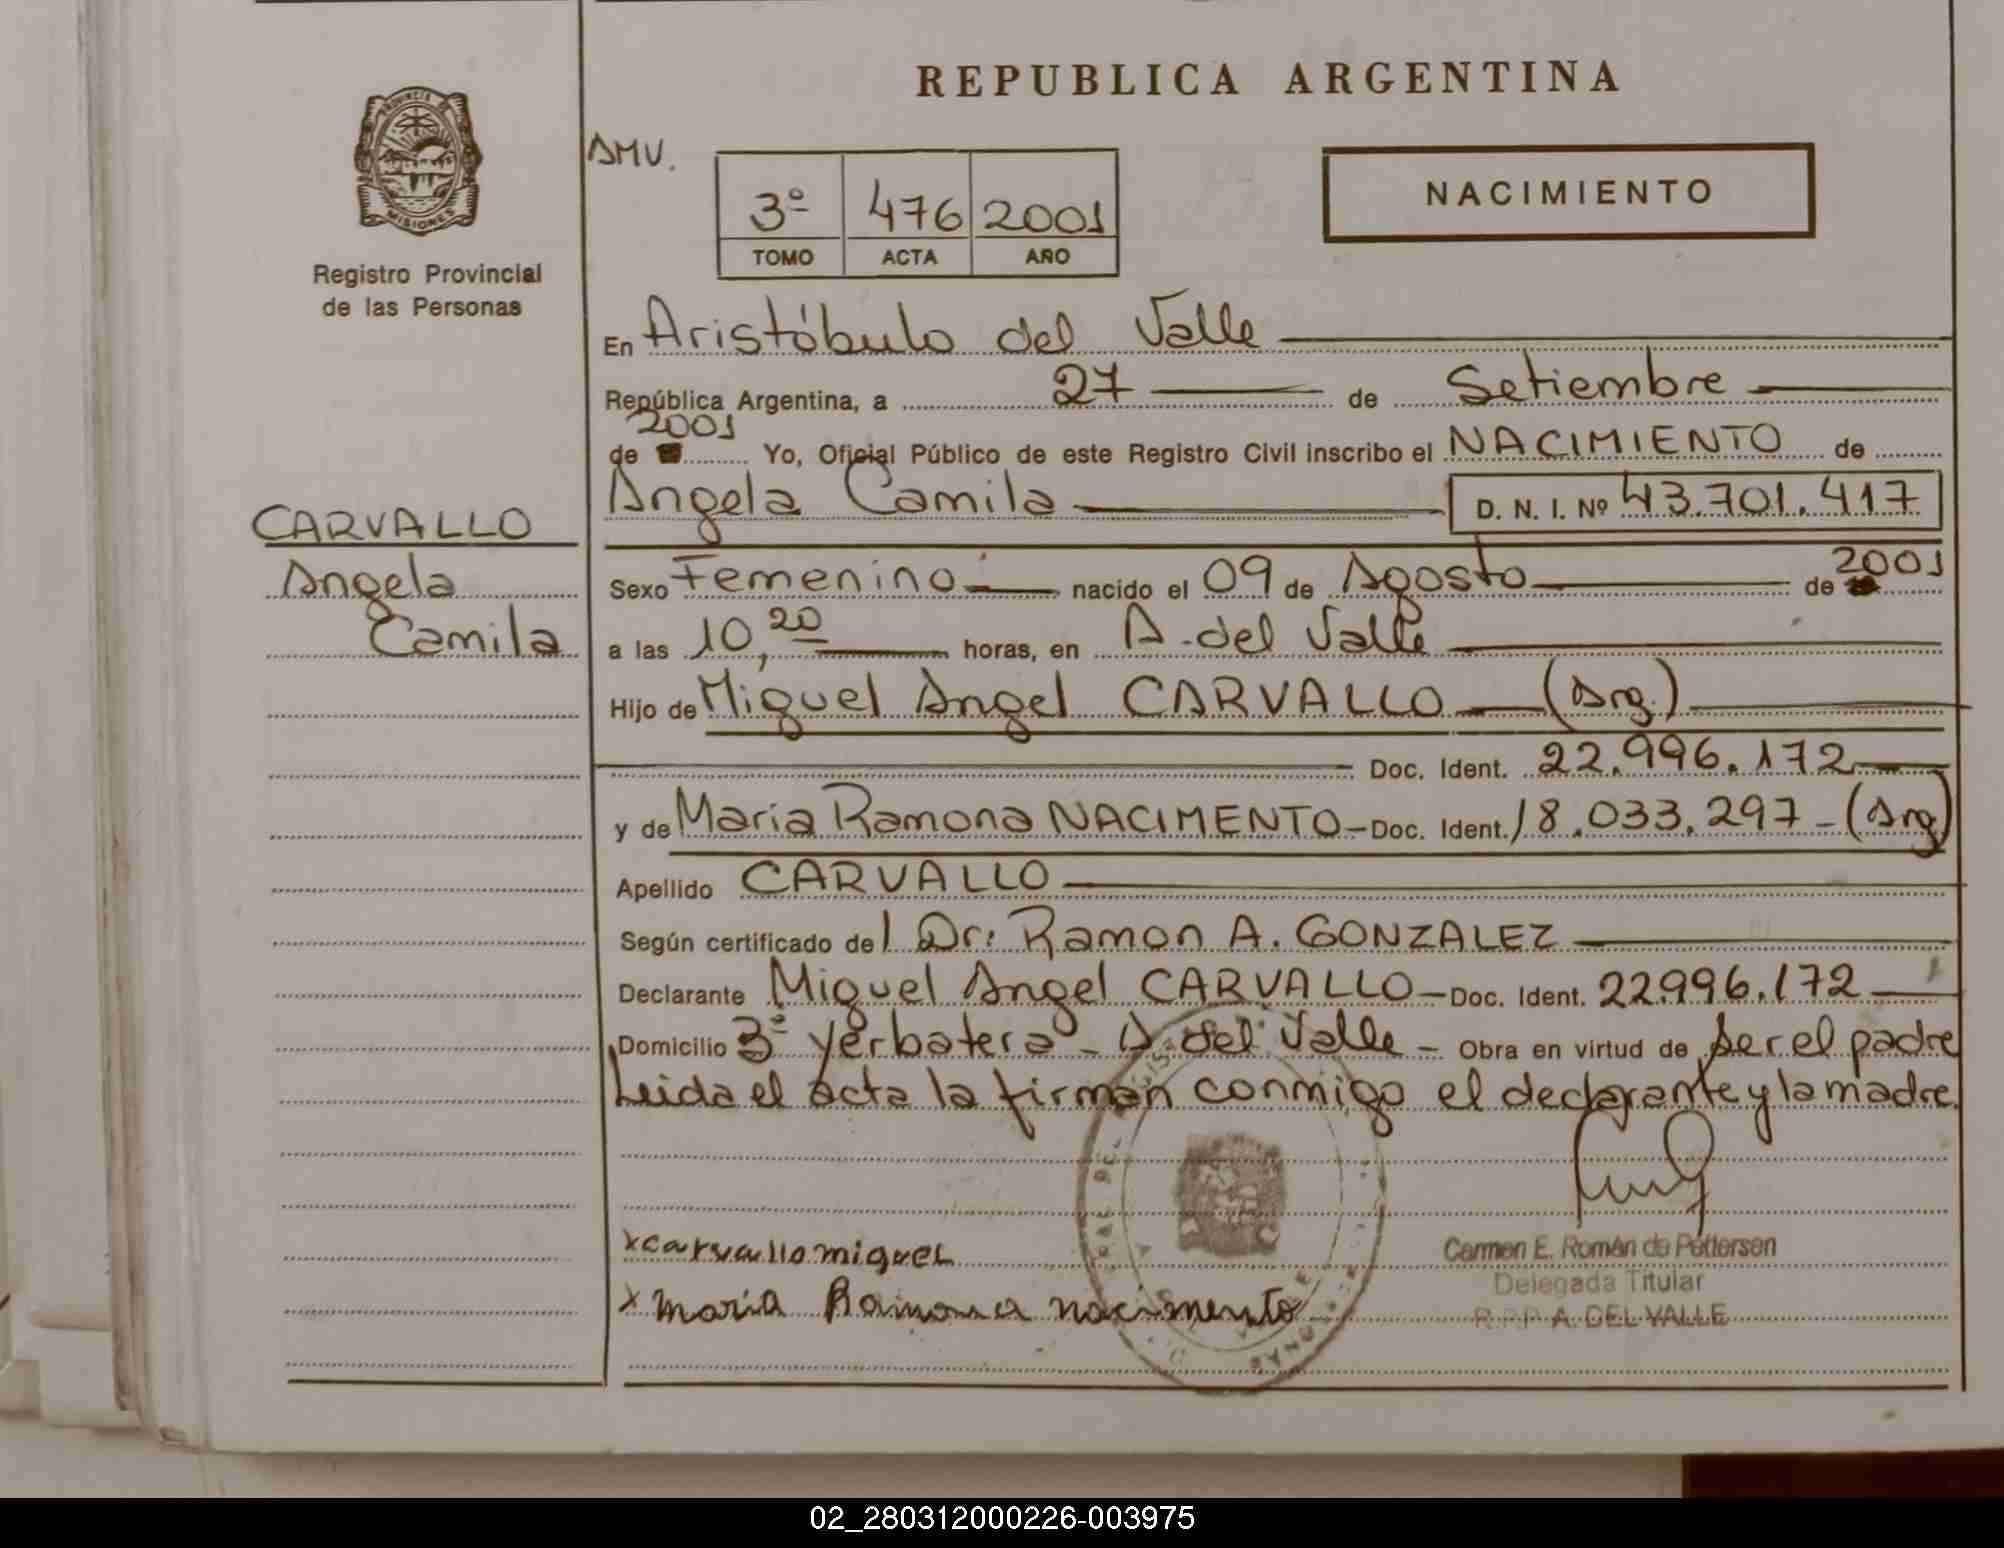 REPUBLICA ARGENTINA
PROVINCIA DE
MISIONES
Registro Provincial
de las Personas
AMV.
3º 476 2001
TOMO ACTA AÑO
NACIMIENTO
En Aristóbulo del Valle
República Argentina, a 27 de Setiembre
de 2001 Yo, Oficial Público de este Registro Civil inscribo el NACIMIENTO de
Angela Camila D. N. I. Nº 43.701.417
CARVALLO
Angela
Camila
Sexo Femenino nacido el 09 de Agosto de 2001
a las 10,20 horas, en A. del Valle
Hijo de Miguel Angel CARVALLO (Arg.)
Doc. Ident. 22.996.172
y de Maria Ramona NACIMENTO - Doc. Ident. 18.033.297 - (Arg)
Apellido CARVALLO
Según certificado del Dr: Ramon A. GONZALEZ
Declarante Miguel Angel CARVALLO - Doc. Ident. 22.996.172
Domicilio 3ª Yerbatera - A. del Valle - Obra en virtud de ser el padre
Leida el acta la firman conmigo el declarante y la madre
x carvallo miguel
x maria Ramona nacimento
Carmen E. Román de Pettersen
Delegada Titular
R.P.P. A. DEL VALLE
02_280312000226-003975